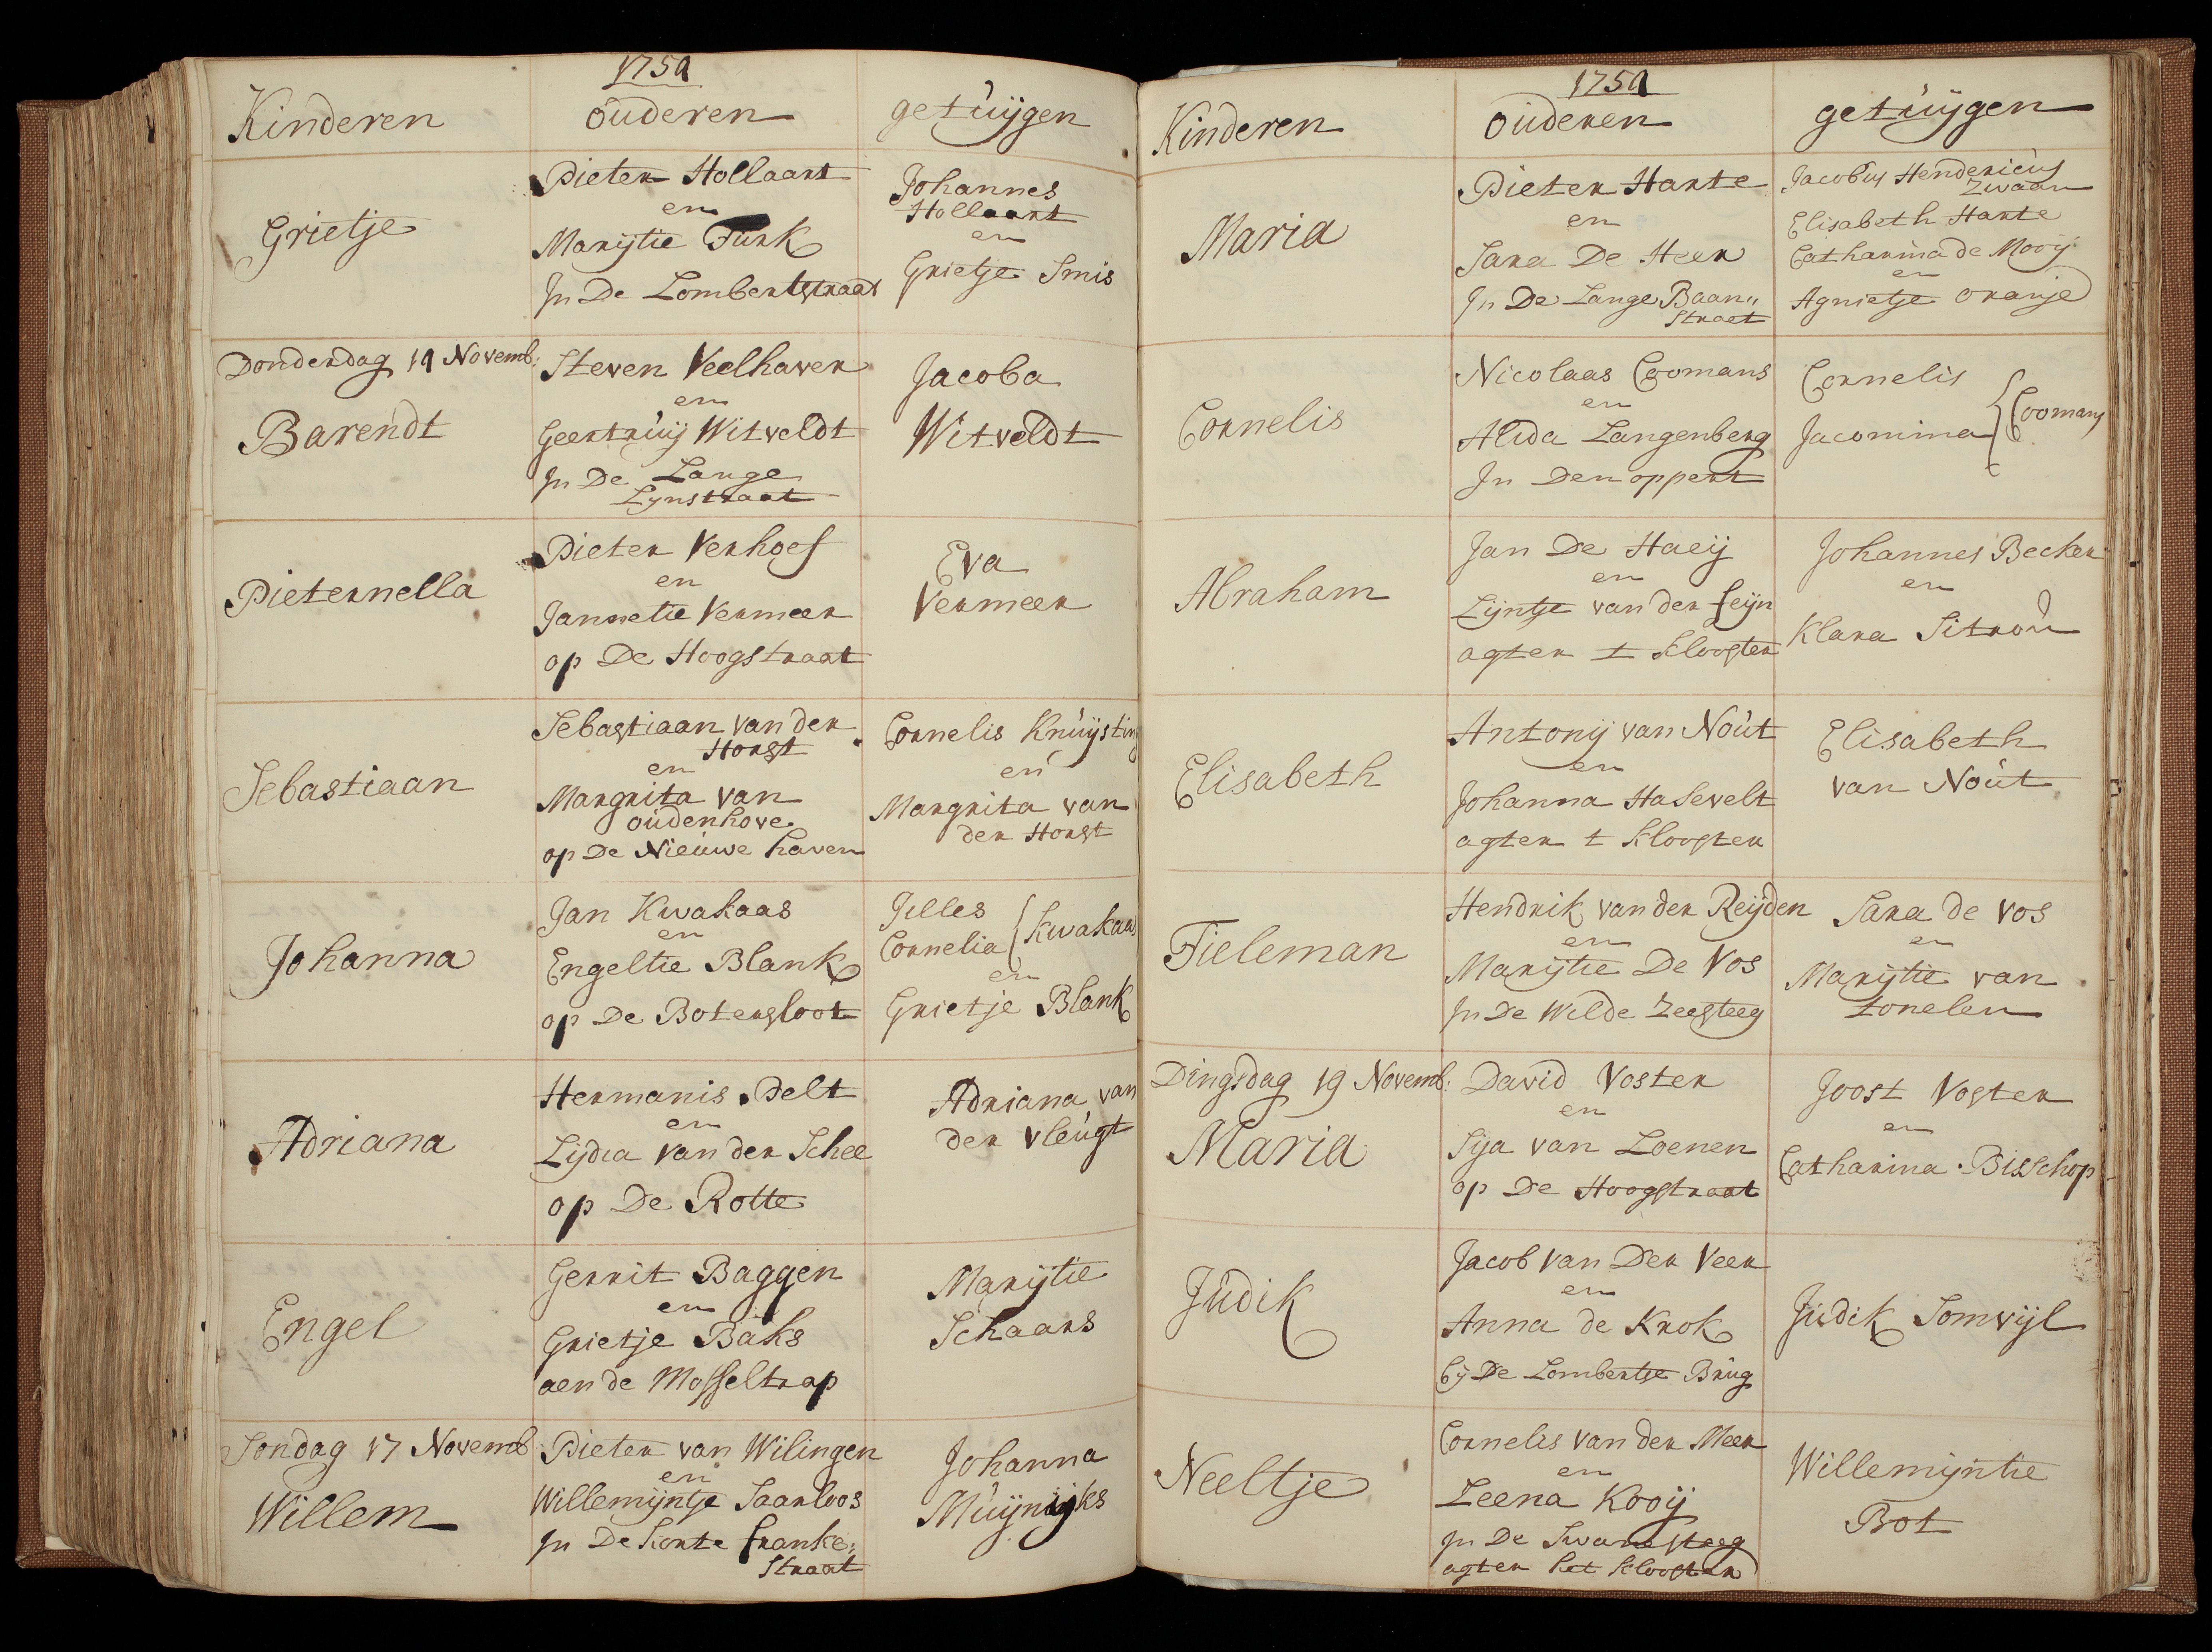 1750
Kinderen ouderen getuijgen
Grietje
Pieter Hollaart
en
Marijtie Turk
In De Lombertstraat
Johannes
Hollaart
en
Grietje Smis
Donderdag 19 Novemb:
Barendt
Steven Veelhaver
en
Geertruij Witveldt
In De Lange
Lynstraat
Jacoba
Witveldt
Pieternella
Pieter Verhoef
en
Jannetie Vermeer
op De Hoogstraat
Eva
Vermeer
Sebastiaan
Sebastiaan van der
Horst
en
Margrita van
oudenhove
op De Nieuwe haven
Cornelis Knuijsting
en
Margrita van
der Horst
Johanna
Jan Kwakaas
en
Engeltie Blank
op De Botersloot
Jilles
Cornelia { Kwakaas
en
Grietje Blank
Adriana
Hermanis Pelt
en
Lijdia van der Schee
op De Rotte
Adriana van
der vleugt
Engel
Gerrit Baggen
en
Grietje Baks
aen de Mosseltrap
Marijtie
Schaars
Sondag 17 Novemb
Willem
Pieter van Wilingen
en
Willemijntje Saarloos
In De korte franke:
Straat
Johanna
Muijnijks
1750
Kinderen ouderen getuijgen
Maria
Pieter Harte
en
Sara De Heer
In De Lange Baan„
Straet
Jacobus Hendericus
Zwaan
Elisabeth Harte
Catharina de Mooij
en
Agnietje oranje
Cornelis
Nicolaas Coomans
en
Alida Langenberg
In Den oppert
Cornelis
Jacomina { Coomans
Abraham
Jan De Haeij
en
Lijntje van der feijn
agter t klooster
Johannes Becker
en
Klara Sitrou
Elisabeth
Antonij van Nout
en
Johanna Hasevelt
agter t klooster
Elisabeth
van Nout
Tieleman
Hendrik van der Reijden
en
Marijtie De Vos
In De Wilde Zeesteeg
Sara de vos
en
Marijtie van
tonelen
Dingsdag 19 Novemb:
Maria
David Voster
en
Sija van Loenen
op De Hoogstraat
Joost Voster
en
Catharina Bisschop
Judik
Jacob van Der Veer
en
Anna de Krok
bij De Lombertse Brug
Judik Somvijl
Neeltje
Cornelis van der Meer
en
Leena Kooij
In De Swanesteeg
agter het klooster
Willemijntie
Bot